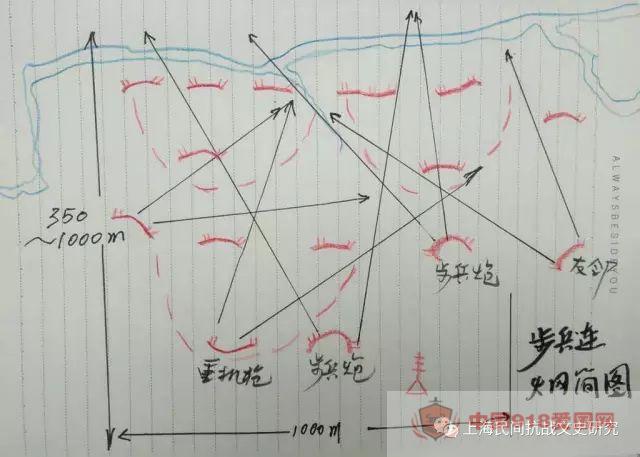 ALWAYSBESIDEYOU
350
~1000m
步兵炮
友邻
重机枪
步兵炮
步兵连
火网简图
1000m
中国918爱国网
上海民间抗战文史研究